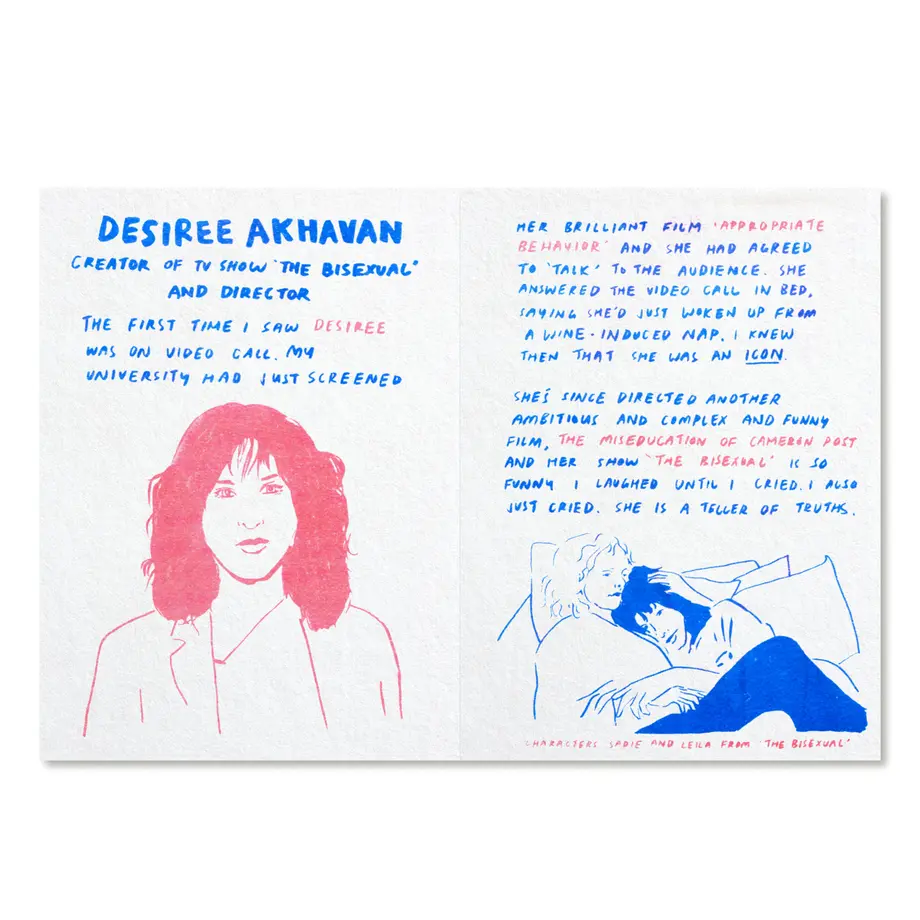 DESIREE AKHAVAN
CREATOR OF TV SHOW 'THE BISEXUAL'
AND DIRECTOR
THE FIRST TIME I SAW DESIREE
WAS ON VIDEO CALL. MY
UNIVERSITY HAD JUST SCREENED
HER BRILLIANT FILM 'APPROPRIATE
BEHAVIOR' AND SHE HAD AGREED
TO 'TALK' TO THE AUDIENCE. SHE
ANSWERED THE VIDEO CALL IN BED,
SAYING SHE'D JUST WOKEN UP FROM
A WINE-INDUCED NAP. I KNEW
THEN THAT SHE WAS AN ICON.
SHE'S SINCE DIRECTED ANOTHER
AMBITIOUS AND COMPLEX AND FUNNY
FILM, THE MISEDUCATION OF CAMERON POST
AND HER SHOW 'THE BISEXUAL' IS SO
FUNNY I LAUGHED UNTIL I CRIED. I ALSO
JUST CRIED. SHE IS A TELLER OF TRUTHS.
CHARACTERS SADIE AND LEILA FROM 'THE BISEXUAL'